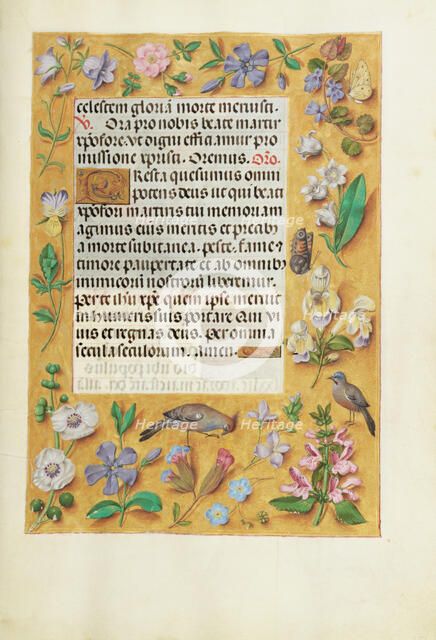 celestem gloriã morte meruisti.
V. Ora pro nobis beate martir
xp̃ofore. vt digni efficiamur pro
missione xp̃risti. Oremus. Oro.
Resta quesumus omni
potens deus ut qui beati
xp̃ofori martiris tui memoriã
agimus eius meritis et precibus
a morte subitanea. peste. fame.
timore paupertate et ab omnibus
inimicorũ nostrorũ
Per te ihu xp̃e quem ipse meruit
in humeris suis portare Qui viuis
et regnas deus. Per omnia
secula seculorum. Amen.
Heritage
Heritage
Heritage
Heritage
Heritage
Heritage